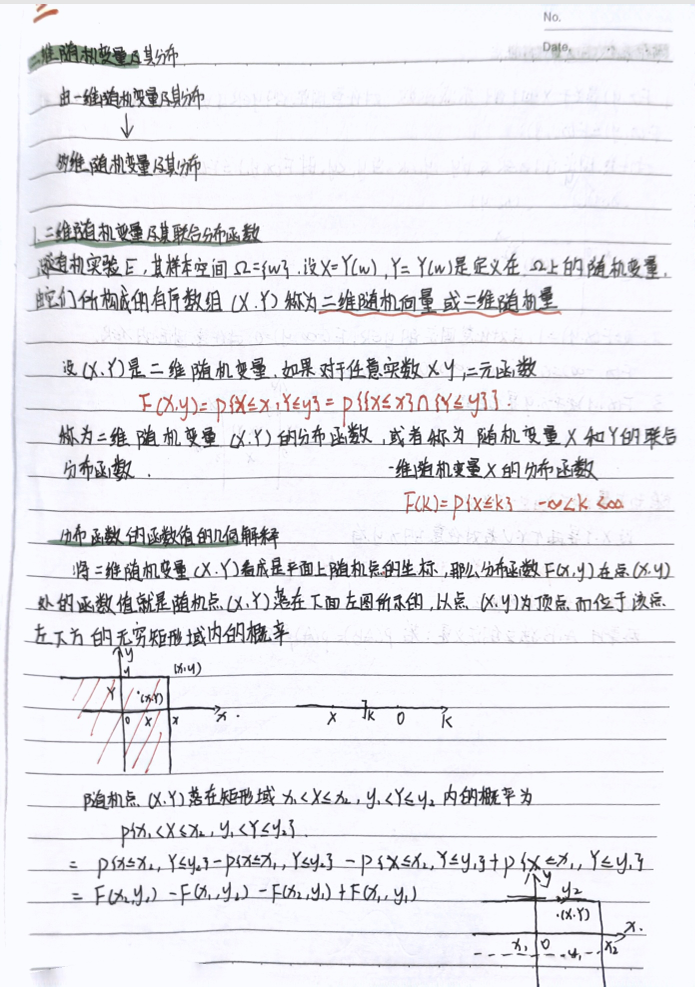 三
No.
Date.
二维随机变量及其分布
由一维随机变量及其分布
↓
二维随机变量及其分布
1.二维随机变量及其联合分布函数
随机实验E,其样本空间Ω={w}.设X=Y(w),Y=Y(w)是定义在Ω上的随机变量.
由它们所构成的有序数组(X.Y)称为二维随机向量或二维随机量
设(X,Y)是二维随机变量.如果对于任意实数x y,二元函数
F(x,y)=p{X≤x,Y≤y}=p{{X≤x}∩{Y≤y}}
称为二维随机变量(X.Y)的分布函数,或者称为随机变量X和Y的联合
分布函数.
一维随机变量X的分布函数
F(k)=p{X≤k} -∞<k<∞
分布函数的函数值的几何解释
将二维随机变量(X.Y)看成是平面上随机点的坐标.那么分布函数F(x,y)在点(x.y)
处的函数值就是随机点(X,Y)落在下面左图所示的,以点(x,y)为顶点而位于该点
左下方的无穷矩形域内的概率
y
y (x.y)
Y (X,Y)
0 X x x.
X k 0 k
随机点(X.Y)落在矩形域x₁<X≤x₂,y₁<Y≤y₂内的概率为
p{x₁<X≤x₂,y₁<Y≤y₂}.
= p{X≤x₂,Y≤y₂}-p{X≤x₁,Y≤y₂}-p{X≤x₂,Y≤y₁}+p{X≤x₁,Y≤y₁}
= F(x₂,y₂)-F(x₁,y₂)-F(x₂,y₁)+F(x₁,y₁)
y
y₂
(X.Y)
x.
x₁ 0 y₁ x₂